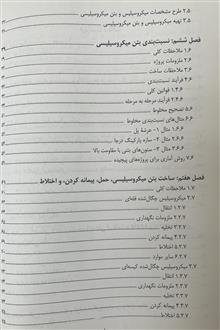 ۲.۵ طرح مشخصات میکروسیلیس و بتن میکروسیلیسی
۳.۵ تهیه میکروسیلیس و بتن میکروسیلیسی
فصل ششم: نسبت‌بندی بتن میکروسیلیسی
۱.۶ ملاحظات کلی
۲.۶ ملزومات پروژه
۳.۶ ملاحظات ساخت
۴.۶ فرآیند نسبت‌بندی
۱.۴.۶ قوانین کلی
۲.۴.۶ فرآیند مرحله به مرحله
۵.۶ تصحیح مخلوط
۶.۶ مثال‌های نسبت‌بندی مخلوط
۱.۶.۶ مثال ۱- عرشهٔ پل
۲.۶.۶ مثال ۲- سازه پارکینگ درجا
۳.۶.۶ مثال ۳- ستون‌های بتنی با مقاومت بالا
۷.۶ روش آماری برای پروژه‌های پیچیده
فصل هفتم: ساخت بتن میکروسیلیسی، حمل، پیمانه کردن، و اختلاط
۱.۷ ملاحظات کلی
۲.۷ میکروسیلیس چگال‌شده فله‌ای
۱.۲.۷ انتقال
۲.۲.۷ ملزومات نگهداری
۳.۲.۷ تخلیه
۴.۲.۷ پیمانه کردن
۵.۲.۷ اختلاط
۶.۲.۷ سایر موارد
۳.۷ میکروسیلیس چگال‌شده کیسه‌ای
۱.۳.۷ انتقال
۲.۳.۷ ملزومات نگهداری
۳.۳.۷ تخلیه
۴.۳.۷ پیمانه کردن
۵.۳.۷ اختلاط